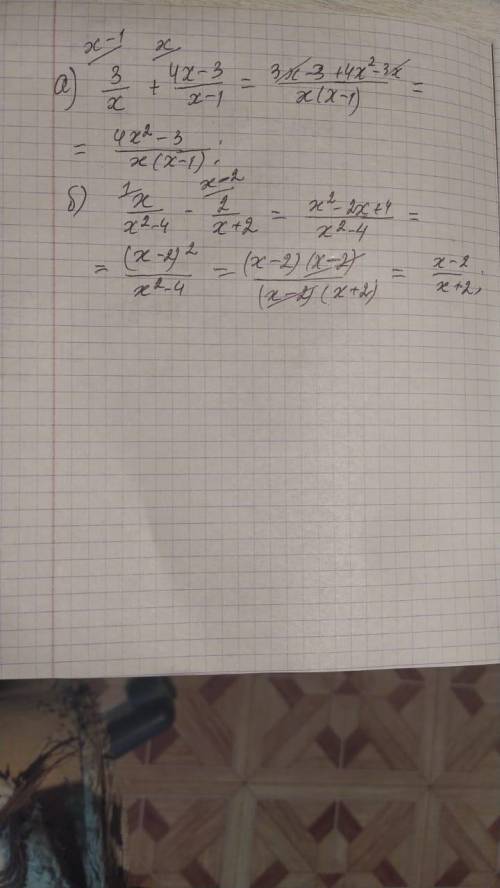 x-1 x
а) 3/x + (4x-3)/(x-1) = (3x-3+4x²-3x)/(x(x-1)) =
= (4x²-3)/(x(x-1));
1 x-2
б) x/(x²-4) - 2/(x+2) = (x²-2x+4)/(x²-4) =
= (x-2)²/(x²-4) = (x-2)(x-2)/((x-2)(x+2)) = (x-2)/(x+2);